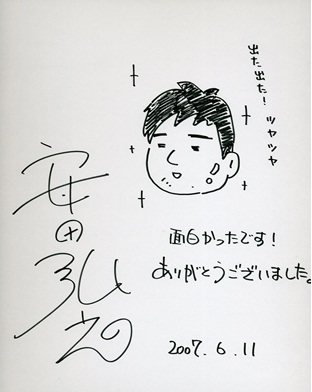 出た出た!ツヤツヤ
安田弘之
面白かったです!
ありがとうございました。
2007.6.11